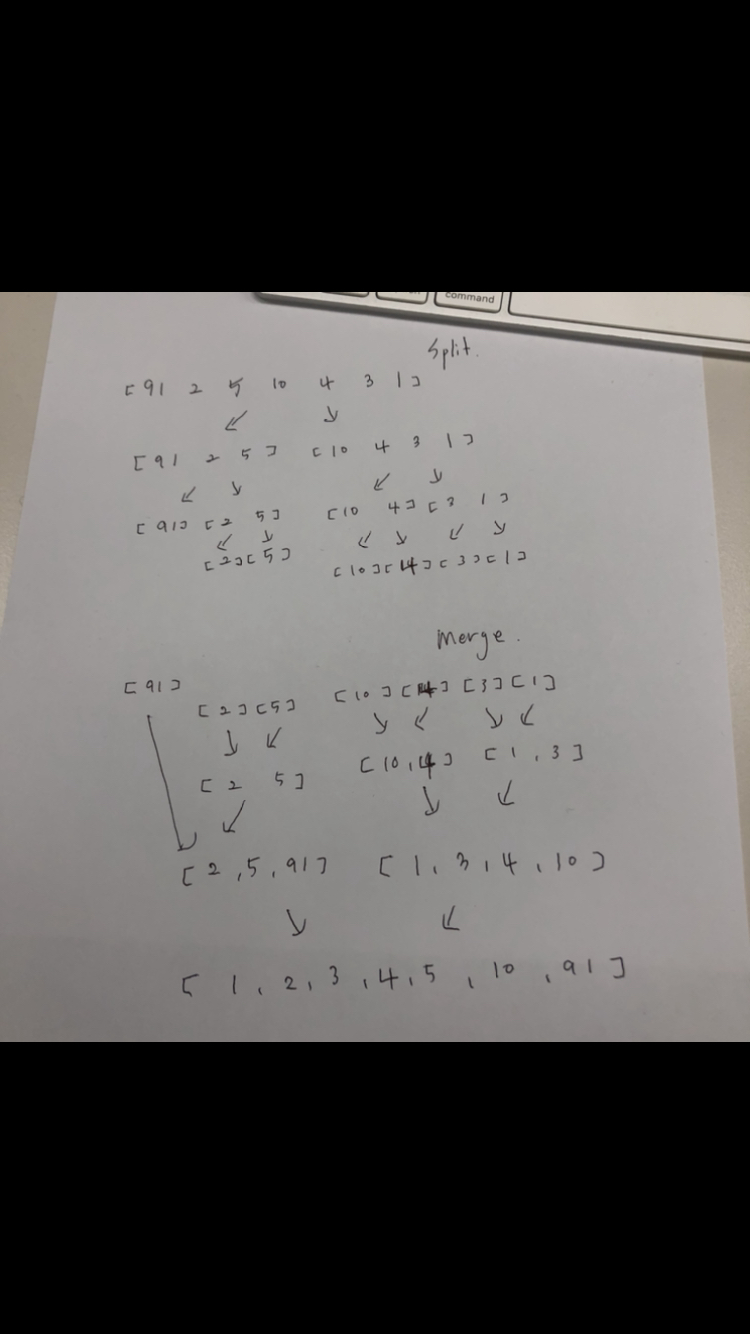 command
Split.
[ 91 2 5 10 4 3 1 ]
[ 91 2 5 ] [ 10 4 3 1 ]
[ 91 ] [ 2 5 ] [ 10 4 ] [ 3 1 ]
[ 2 ] [ 5 ] [ 10 ] [ 4 ] [ 3 ] [ 1 ]
Merge.
[ 91 ] [ 2 ] [ 5 ] [ 10 ] [ 4 ] [ 3 ] [ 1 ]
[ 2 5 ] [ 10, 4 ] [ 1, 3 ]
[ 2, 5, 91 ] [ 1, 3, 4, 10 ]
[ 1, 2, 3, 4, 5, 10, 91 ]